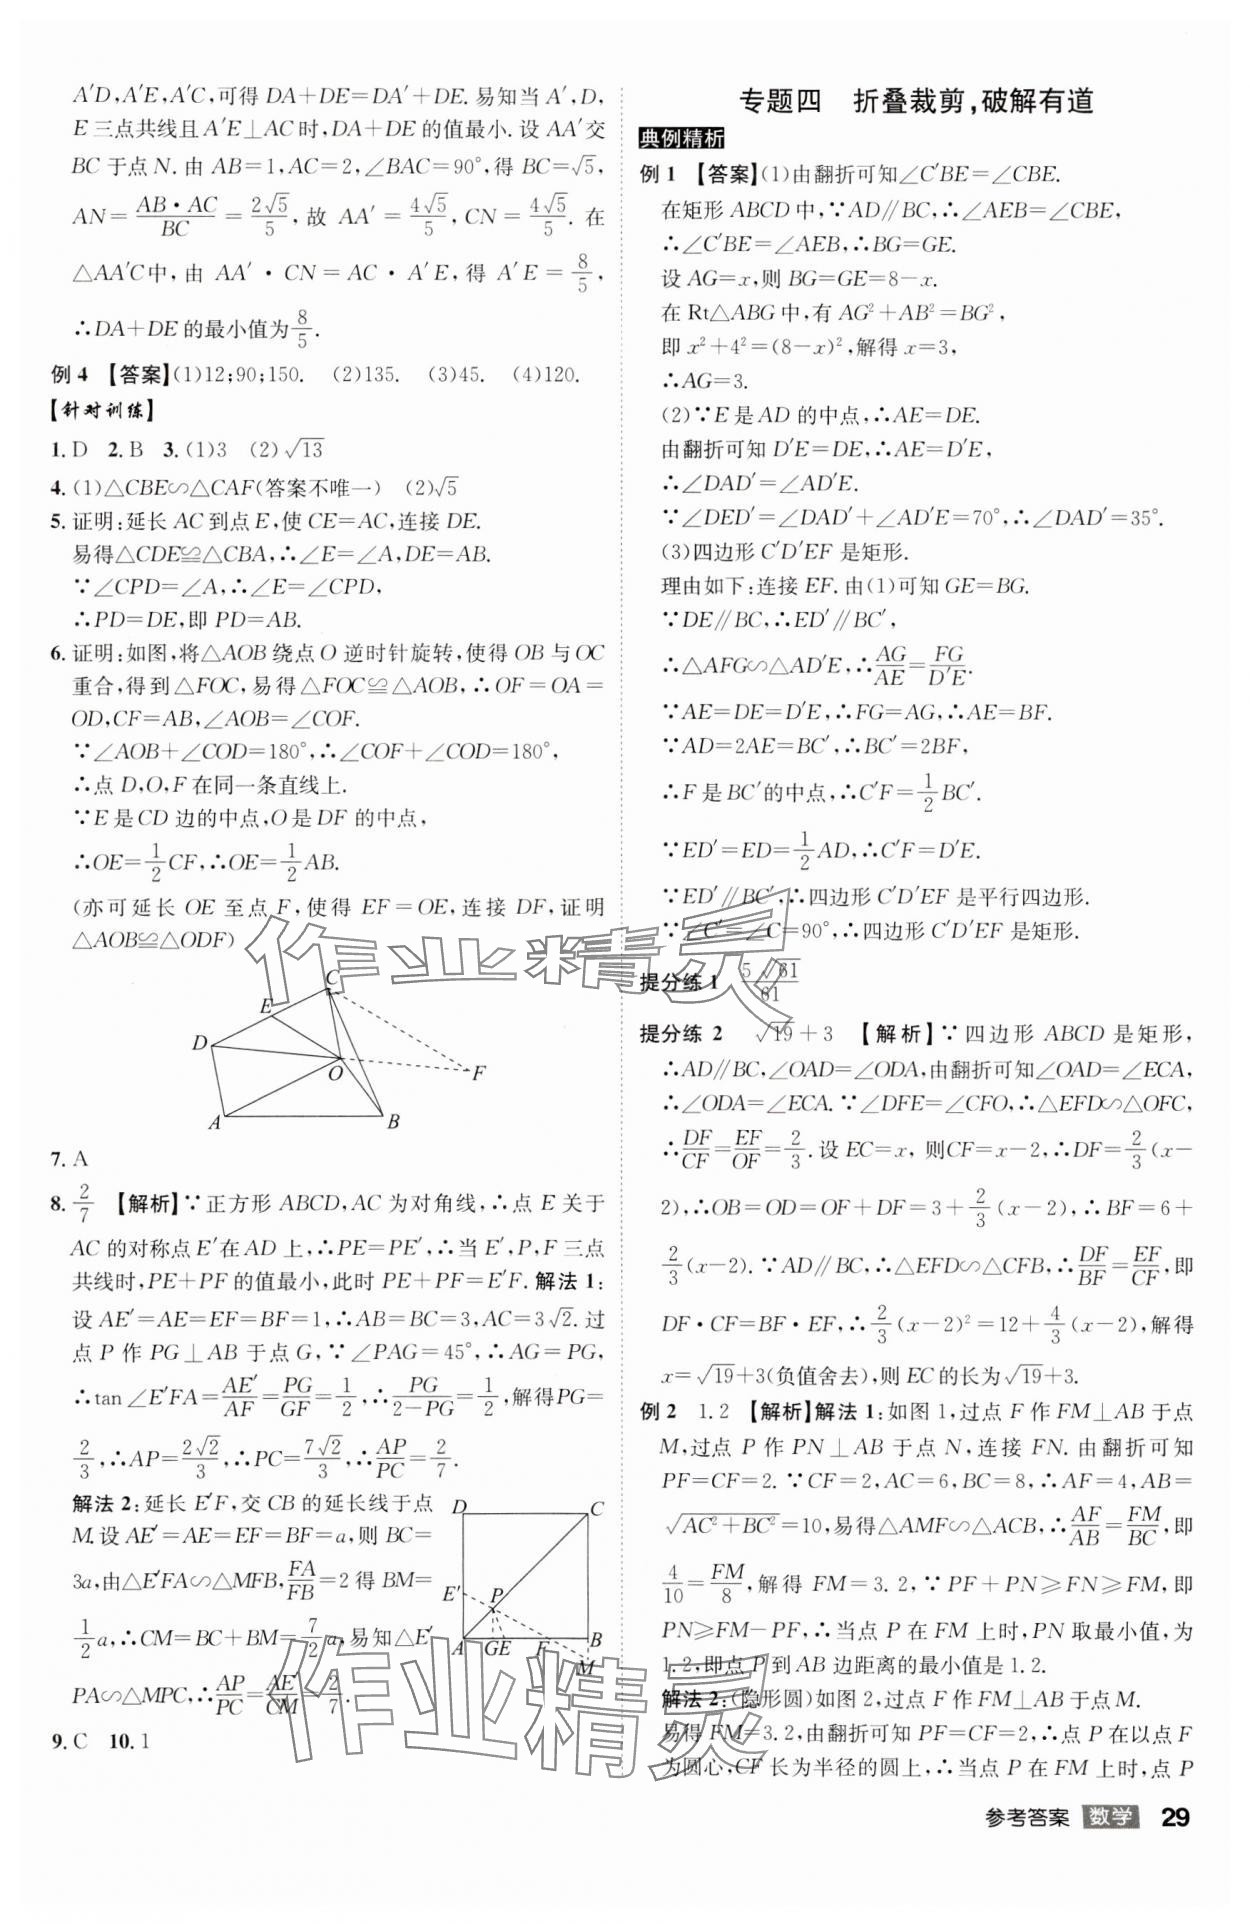 A′D,A′E,A′C,可得 DA+DE=DA+DE.易知当 A′,D,
E 三点共线且 A′E⊥AC 时,DA+DE 的值最小.设 AA′交
BC 于点 N.由 AB=1,AC=2,∠BAC=90°,得 BC=√5,
AN=AB·AC/BC=2√5/5,故 AA′=4√5/5,CN=4√5/5.在
△AA′C中,由 AA′·CN=AC·A′E,得 A′E=8/5,
∴DA+DE 的最小值为8/5.
例 4 【答案】(1)12;90;150. (2)135. (3)45. (4)120.
【针对训练】
1.D 2.B 3.(1)3 (2)√13
4.(1)△CBE∽△CAF(答案不唯一) (2)√5
5.证明:延长 AC 到点 E,使 CE=AC,连接 DE.
易得△CDE≌△CBA,∴∠E=∠A,DE=AB.
∵∠CPD=∠A,∴∠E=∠CPD,
∴PD=DE,即 PD=AB.
6.证明:如图,将△AOB 绕点 O 逆时针旋转,使得 OB 与 OC
重合,得到△FOC,易得△FOC≌△AOB,∴OF=OA=
OD,CF=AB,∠AOB=∠COF.
∵∠AOB+∠COD=180°,∴∠COF+∠COD=180°,
∴点 D,O,F 在同一条直线上.
∵E 是 CD 边的中点,O 是 DF 的中点,
∴OE=1/2CF,∴OE=1/2AB.
(亦可延长 OE 至点 F,使得 EF=OE,连接 DF,证明
△AOB≌△ODF)
C
E
D
O
F
A
B
7.A
8.2/7 【解析】∵正方形 ABCD,AC 为对角线,∴点 E 关于
AC 的对称点 E′在 AD 上,∴PE=PE′,∴当 E′,P,F 三点
共线时,PE+PF 的值最小,此时 PE+PF=E′F.解法 1:
设 AE′=AE=EF=BF=1,∴AB=BC=3,AC=3√2.过
点 P 作 PG⊥AB 于点 G,∵∠PAG=45°,∴AG=PG,
∴tan∠E′FA=AE′/AF=PG/GF=1/2,∴PG/(2-PG)=1/2,解得PG=
2/3,∴AP=2√2/3,∴PC=7√2/3,∴AP/PC=2/7.
解法 2:延长 E′F,交 CB 的延长线于点
M.设 AE′=AE=EF=BF=a,则 BC=
3a,由△E′FA∽△MFB,FA/FB=2 得 BM=
1/2a,∴CM=BC+BM=7/2a,易知△E′
PA∽△MPC,∴AP/PC=AE′/CM=2/7.
D
C
E′
P
A
G
E
F
B
M
9.C 10.1
专题四 折叠裁剪,破解有道
典例精析
例 1 【答案】(1)由翻折可知∠C′BE=∠CBE.
在矩形 ABCD 中,∵AD∥BC,∴∠AEB=∠CBE,
∴∠C′BE=∠AEB,∴BG=GE.
设 AG=x,则 BG=GE=8-x.
在 Rt△ABG 中,有 AG²+AB²=BG²,
即 x²+4²=(8-x)²,解得 x=3,
∴AG=3.
(2)∵E 是 AD 的中点,∴AE=DE.
由翻折可知 D′E=DE,∴AE=D′E,
∴∠DAD′=∠AD′E.
∵∠DED′=∠DAD′+∠AD′E=70°,∴∠DAD′=35°.
(3)四边形 C′D′EF 是矩形.
理由如下:连接 EF.由(1)可知 GE=BG.
∵DE∥BC,∴ED′∥BC′,
∴△AFG∽△AD′E,∴AG/AE=FG/D′E.
∵AE=DE=D′E,∴FG=AG,∴AE=BF.
∵AD=2AE=BC′,∴BC′=2BF,
∴F 是 BC′的中点,∴C′F=1/2BC′.
∵ED′=ED=1/2AD,∴C′F=D′E.
∵ED′∥BC′,∴四边形 C′D′EF 是平行四边形.
∵∠C′=∠C=90°,∴四边形 C′D′EF 是矩形.
提分练 1 5√61/61
提分练 2 √19+3 【解析】∵四边形 ABCD 是矩形,
∴AD∥BC,∠OAD=∠ODA,由翻折可知∠OAD=∠ECA,
∴∠ODA=∠ECA.∵∠DFE=∠CFO,∴△EFD∽△OFC,
∴DF/CF=EF/OF=2/3.设 EC=x,则CF=x-2,∴DF=2/3(x-
2),∴OB=OD=OF+DF=3+2/3(x-2),∴BF=6+
2/3(x-2).∵AD∥BC,∴△EFD∽△CFB,∴DF/BF=EF/CF,即
DF·CF=BF·EF,∴2/3(x-2)²=12+4/3(x-2),解得
x=√19+3(负值舍去),则 EC 的长为√19+3.
例 2 1.2 【解析】解法 1:如图 1,过点 F 作 FM⊥AB 于点
M,过点 P 作 PN⊥AB 于点 N,连接 FN.由翻折可知
PF=CF=2.∵CF=2,AC=6,BC=8,∴AF=4,AB=
√(AC²+BC²)=10,易得△AMF∽△ACB,∴AF/AB=FM/BC,即
4/10=FM/8,解得 FM=3.2,∵PF+PN≥FN≥FM,即
PN≥FM-PF,∴当点 P 在 FM 上时,PN 取最小值,为
1.2,即点 P 到 AB 边距离的最小值是 1.2.
解法 2:(隐形圆)如图 2,过点 F 作 FM⊥AB 于点 M.
易得 FM=3.2,由翻折可知 PF=CF=2,∴点 P 在以点 F
为圆心,CF 长为半径的圆上,∴当点 P 在 FM 上时,点 P
作业精灵
作业精灵
参考答案 数学 29